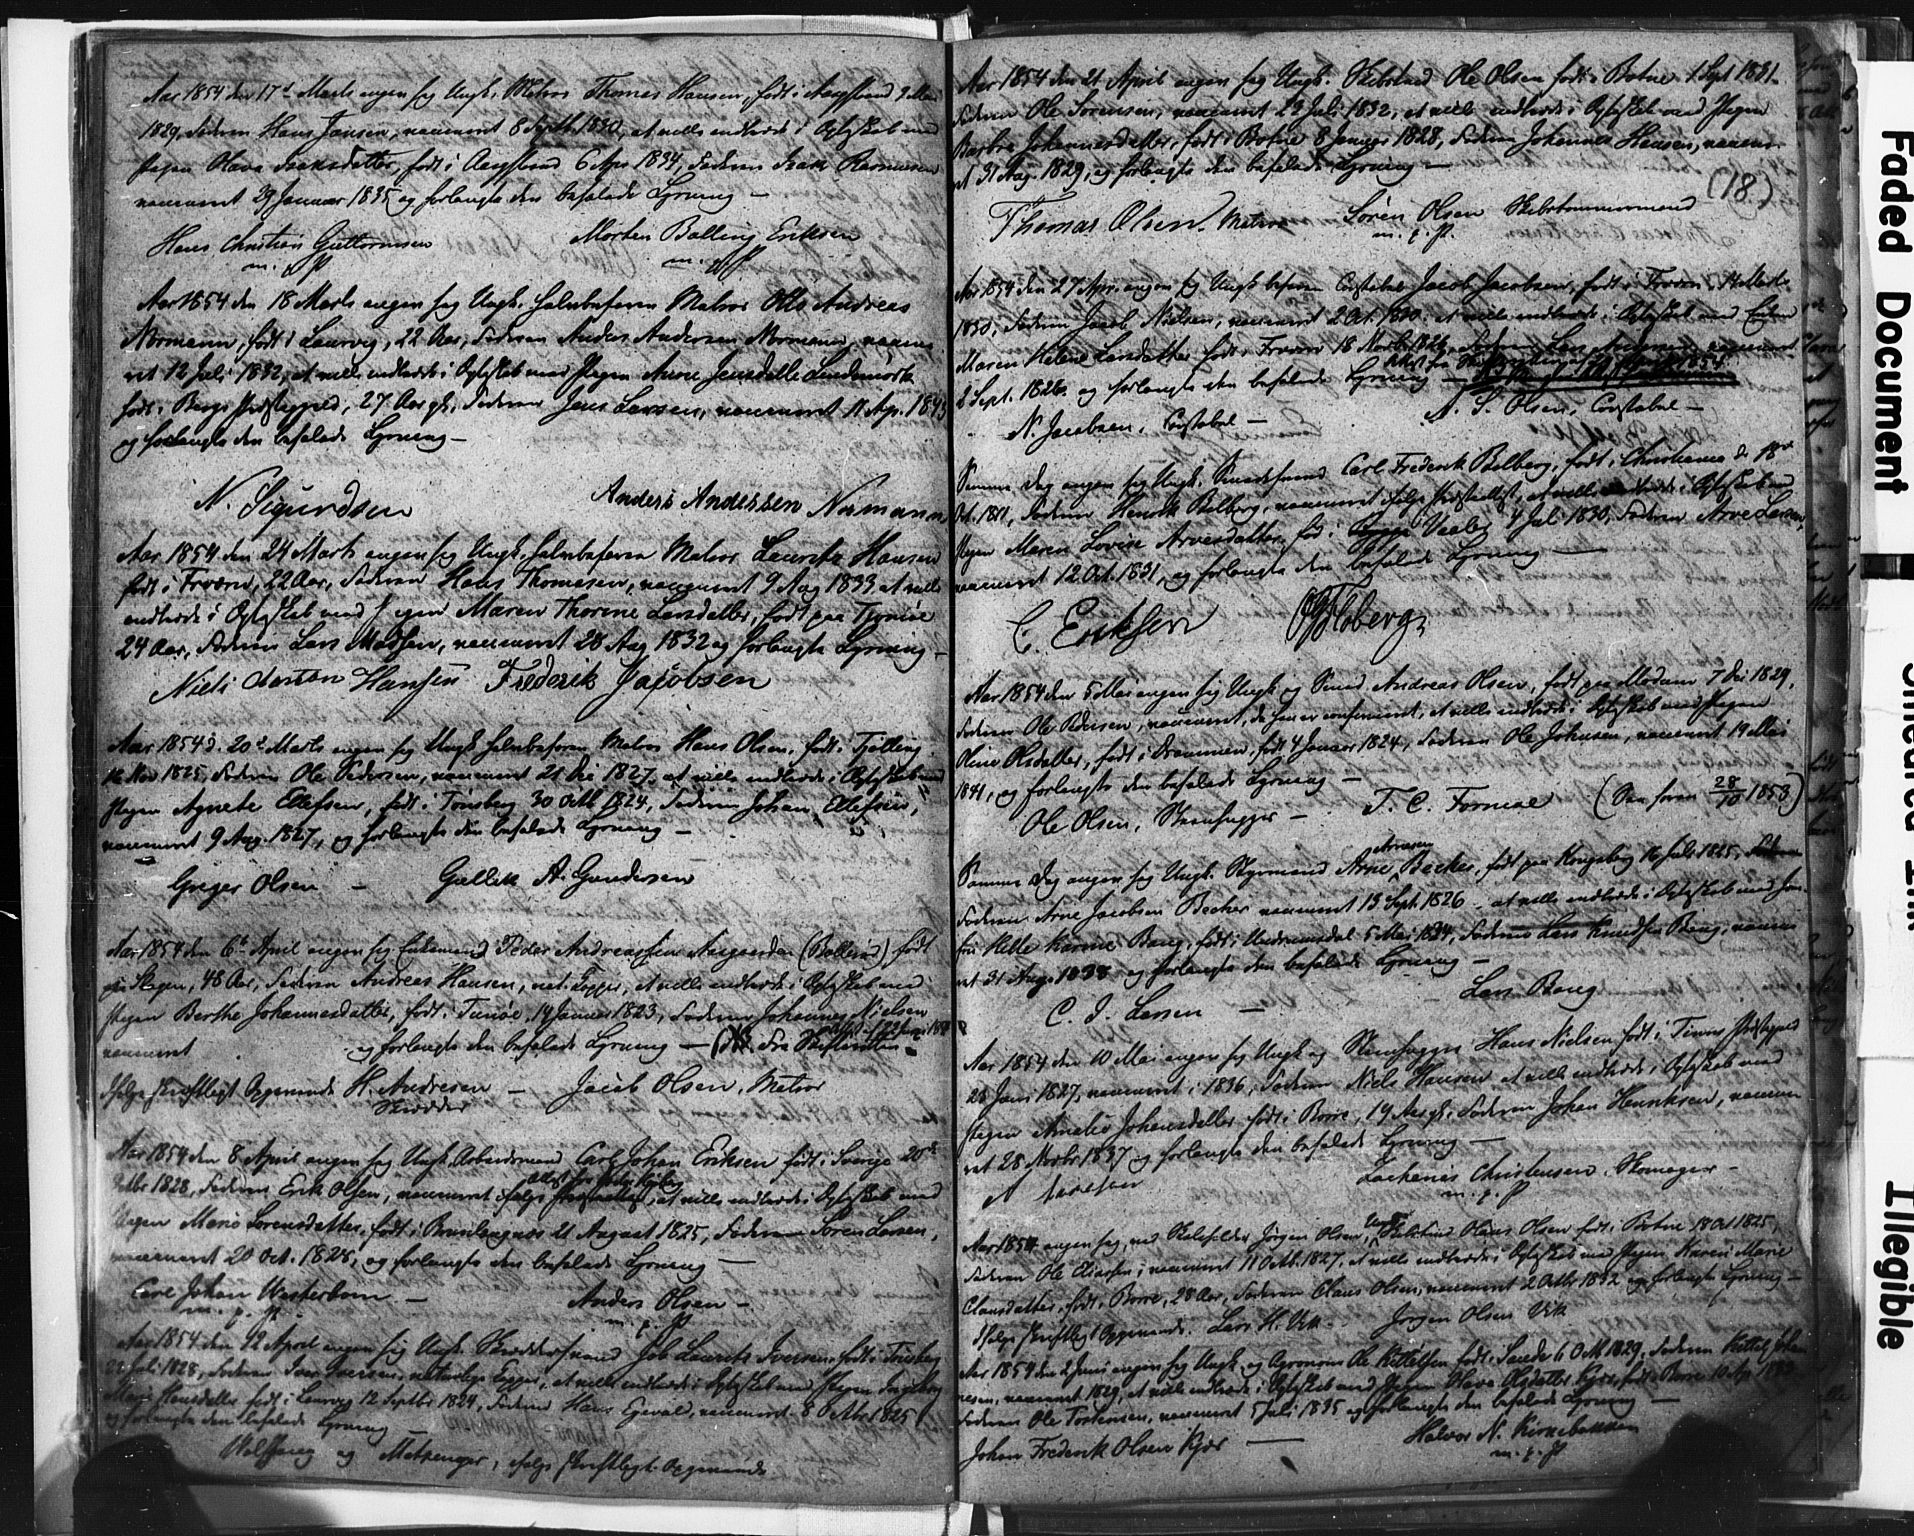 Aar 1854 den 17d Marts angav sig Ungk. Matros Thomas Hansen, født i Aasgstrand
1829, Faderen Hans Jansen, vaccineret 8 Septb. 1830, at ville indtræde i Ægteskab med
Pigen Olava Isaksdatter, født i Aasgstrand 6 Apr 1834, Faderen Isak Rasmussen
vaccineret 29 Januar 1835 og forlangte den befalede Lysning —
Hans Christian Guttormsen Morten Balling Eriksen
m. p. P m. p. P
Aar 1854 den 18 Marts angav sig Ungk. Halvbefaren Matros Otto Andreas
Normann, født i Laurvig, 22 Aar, Faderen Anders Andersen Normann, vaccine-
ret 12 Juli 1832, at ville indtræde i Ægteskab med Pigen Anne Jensdatter Lindemark
født i Bergs Præstegjeld, 27 Aar gl., Faderen Jens Larsen, vaccineret 11 Apr. 1843
og forlangte den befalede Lysning —
N. Sigurdsen Anders Anderssen Normann
Aar 1854 den 24 Marts angav sig Ungk. halvbefaren Matros Lauritz Hansen
født i Frværn, 22 Aar, Faderen Hans Thomesen, vaccineret 9 Aug 1833 at ville
indtræde i Ægteskab med Pigen Maren Thorine Larsdatter, født paa Tjømøe
24 Aar, Faderen Lars Madsen, vaccineret 28 Aug 1832 og forlangte Lysning —
Niels Hansen Frederik Jacobsen
Aar 1854 d. 20d Marts angav sig Ungk halvbefaren Matros Hans Olsen, født i Tjølling
16 Nov 1825, Faderen Ole Pedersen, vaccineret 21 Dec 1827, at ville indtræde i Ægteskab med
Pigen Agnete Ellefsen, født i Tønsberg 30 Octb 1824, Faderen Johan Ellefsen,
vaccineret 9 Aug. 1827, og forlangte den befalede Lysning —
Greger Olsen — Gullik A. Gundersen
Aar 1854 den 6t April angav sig Enkemand Peder Andreassen Aasgaarden (Bollerød) født
paa Slagen, 48 Aar, Faderen Andreas Hansen, nat. Kopper, at ville indtræde i Ægteskab med
Pigen Berthe Johannesdatter, født i Tunøe, 14 Januar 1823, Faderen Johannes Nielsen
vaccineret og forlangte den befalede Lysning — (Att. fra Skifteretten
ifølge skriftligt Opgivende H. Andresen — Jacob Olsen, Matros
Skrædder
Aar 1854 den 8 April angav sig Ungk. Arbeidsmand Carl Johan Eriksen født i Sverige 20de
Octbr 1828, Faderen Erik Olsen, vaccineret ifølge Præsteattest, at ville indtræde i Ægteskab med
Pigen Marie Sørensdatter, født i Brunlaugnæs 21 August 1825, Faderen Søren Larsen,
vaccineret 20 Oct. 1828, og forlangte den befalede Lysning —
Carl Johan Westerbom — Anders Olsen —
m. p. P. m. p. P
Aar 1854 den 12 April angav sig Ungk. Skræddersvend Job Lauritz Iversen, født i Tønsberg
22 Juli 1828, Faderen Iver Iversen, naturlige Kopper, at ville indtræde i Ægteskab med Pigen Ingeborg
Marie Hansdatter født i Laurvig 12 Septbr 1824, Faderen Hans Egevald, vaccineret 8 Octbr 1825
og forlangte den befalede Lysning —
Wolffgang og Metzenger, ifølge skriftligt Opgivende
Aar 1854 den 21 April angav sig Ungk. Skibstmd Ole Olsen født i Botne 1 Sept 1831
Faderen Ole Sørensen, vaccineret 29 Juli 1832, at ville indtræde i Ægteskab med Pigen
Barbra Johannesdatter, født i Botne 8 Januar 1828, Faderen Johannes Hansen, vaccine-
ret 31 Aug. 1829, og forlangte den befalede Lysning —
(18.)
Thomas Olsen. Matros Sören Olsen Skibstømmermand
m. p. P.
Aar 1854 den 27 Apr. angav sig Ungk befaren Constabel Jacob Jacobsen, født i Frværn 14 Marts
1830, Faderen Jacob Nielsen, vaccineret 2 Oct. 1830, at ville indtræde i Ægteskab med Enken
Maren Helene Larsdatter født i Frværn 18 Novbr 1826, Faderen Lars vaccineret
2 Sept. 1826 og forlangte den befalede Lysning — Attest fra Skifteretten 1854
N. Jacobsen, Constabel — N. S. Olsen, Constabel —
Samme Dag angav sig Ungk. Smedesvend Carl Frederik Bolberg, født i Christiania d. 18de
Oct. 1811, Faderen Henrik Bolberg, vaccineret ifølge Præsteattest, at ville indtræde i Ægteskab med
Pigen Maren Lovise Arvesdatter, fød i Vaaler 4 Jul 1830, Faderen Arve Larsen,
vaccineret 12 Oct. 1831, og forlangte den befalede Lysning —
C. Eriksen Bolberg
Aar 1854 den 5 Mai angav sig Ungk og Smed Andreas Olsen, født paa Modum 7 Dec 1829,
Faderen Ole Pedersen, vaccineret, da han er confirmeret, at ville indtræde i Ægteskab med Pigen
Oline Olsdatter, født i Drammen, født 4 Januar 1824, Faderen Ole Johnsen, vaccineret 19 Mai
1841, og forlangte den befalede Lysning —
Ole Olsen, Steenhugger — T. C. Formoe (Saa foran 28/10 1853)
Samme Dag angav sig Ungk. Styrmand Arne Arnesen Becker, født paa Kongsberg 16 Juli 1825,
Faderen Arne Jacobsen Becker vaccineret 13 Sept. 1826 at ville indtræde i Ægteskab med Jom-
fru Helle Karine Bang, født i Undrumsdal 5 Mai 1834, Faderen Lars Knudsen Bang, vaccine-
ret 31 Aug. 1838 og forlangte den befalede Lysning —
C. J. Larsen — Lars Bang
Aar 1854 den 10 Mai angav sig Ungk og Steenhugger Hans Nielsen født i Tinns Præstegjeld
28 Juni 1827, vaccineret i 1836, Faderen Niels Hansen at ville indtræde i Ægteskab med
Pigen Amalie Johansdatter født i Borre, 19 Aar gl. Faderen Johan Henriksen, vaccine-
ret 28 Novbr 1837 og forlangte den befalede Lysning —
N Larsen Zacharias Christensen, Skomager —
m. p. P
Aar 1854 angav sig, ved Skolelærer Jørgen Olsen, Ungk Skibstmd Olaus Olsen født i Botne 18 Oct 1825,
Faderen Ole Eliasen, vaccineret 11 Octb. 1827, at ville indtræde i Ægteskab med Pigen Karen Marie
Clausdatter, født i Borre, 28 Aar, Faderen Claus Olsen, vaccineret 2 Octbr 1832 og forlangte Lysning —
ifølge skriftligt Opgivende. Lars H. Vik — Jørgen Olsen Vik
Aar 1854 den 2 Juni angav sig Ungk og Agronom Ole Kittelsen født i Sande 11 Oct 1829, Faderen Kittel Johan-
nesen, vaccineret 1829, at ville indtræde i Ægteskab med Pigen Olava Olsdatter Kjær, født i Borre 10 Apr 1833
Faderen Ole Torstensen, vaccineret 5 Juli 1835 og forlangte den befalede Lysning —
Johan Frederik Olsen Kjær — Halvor N. Kirkebakken
m. p. P
Faded Document
Smeared Ink
Illegible